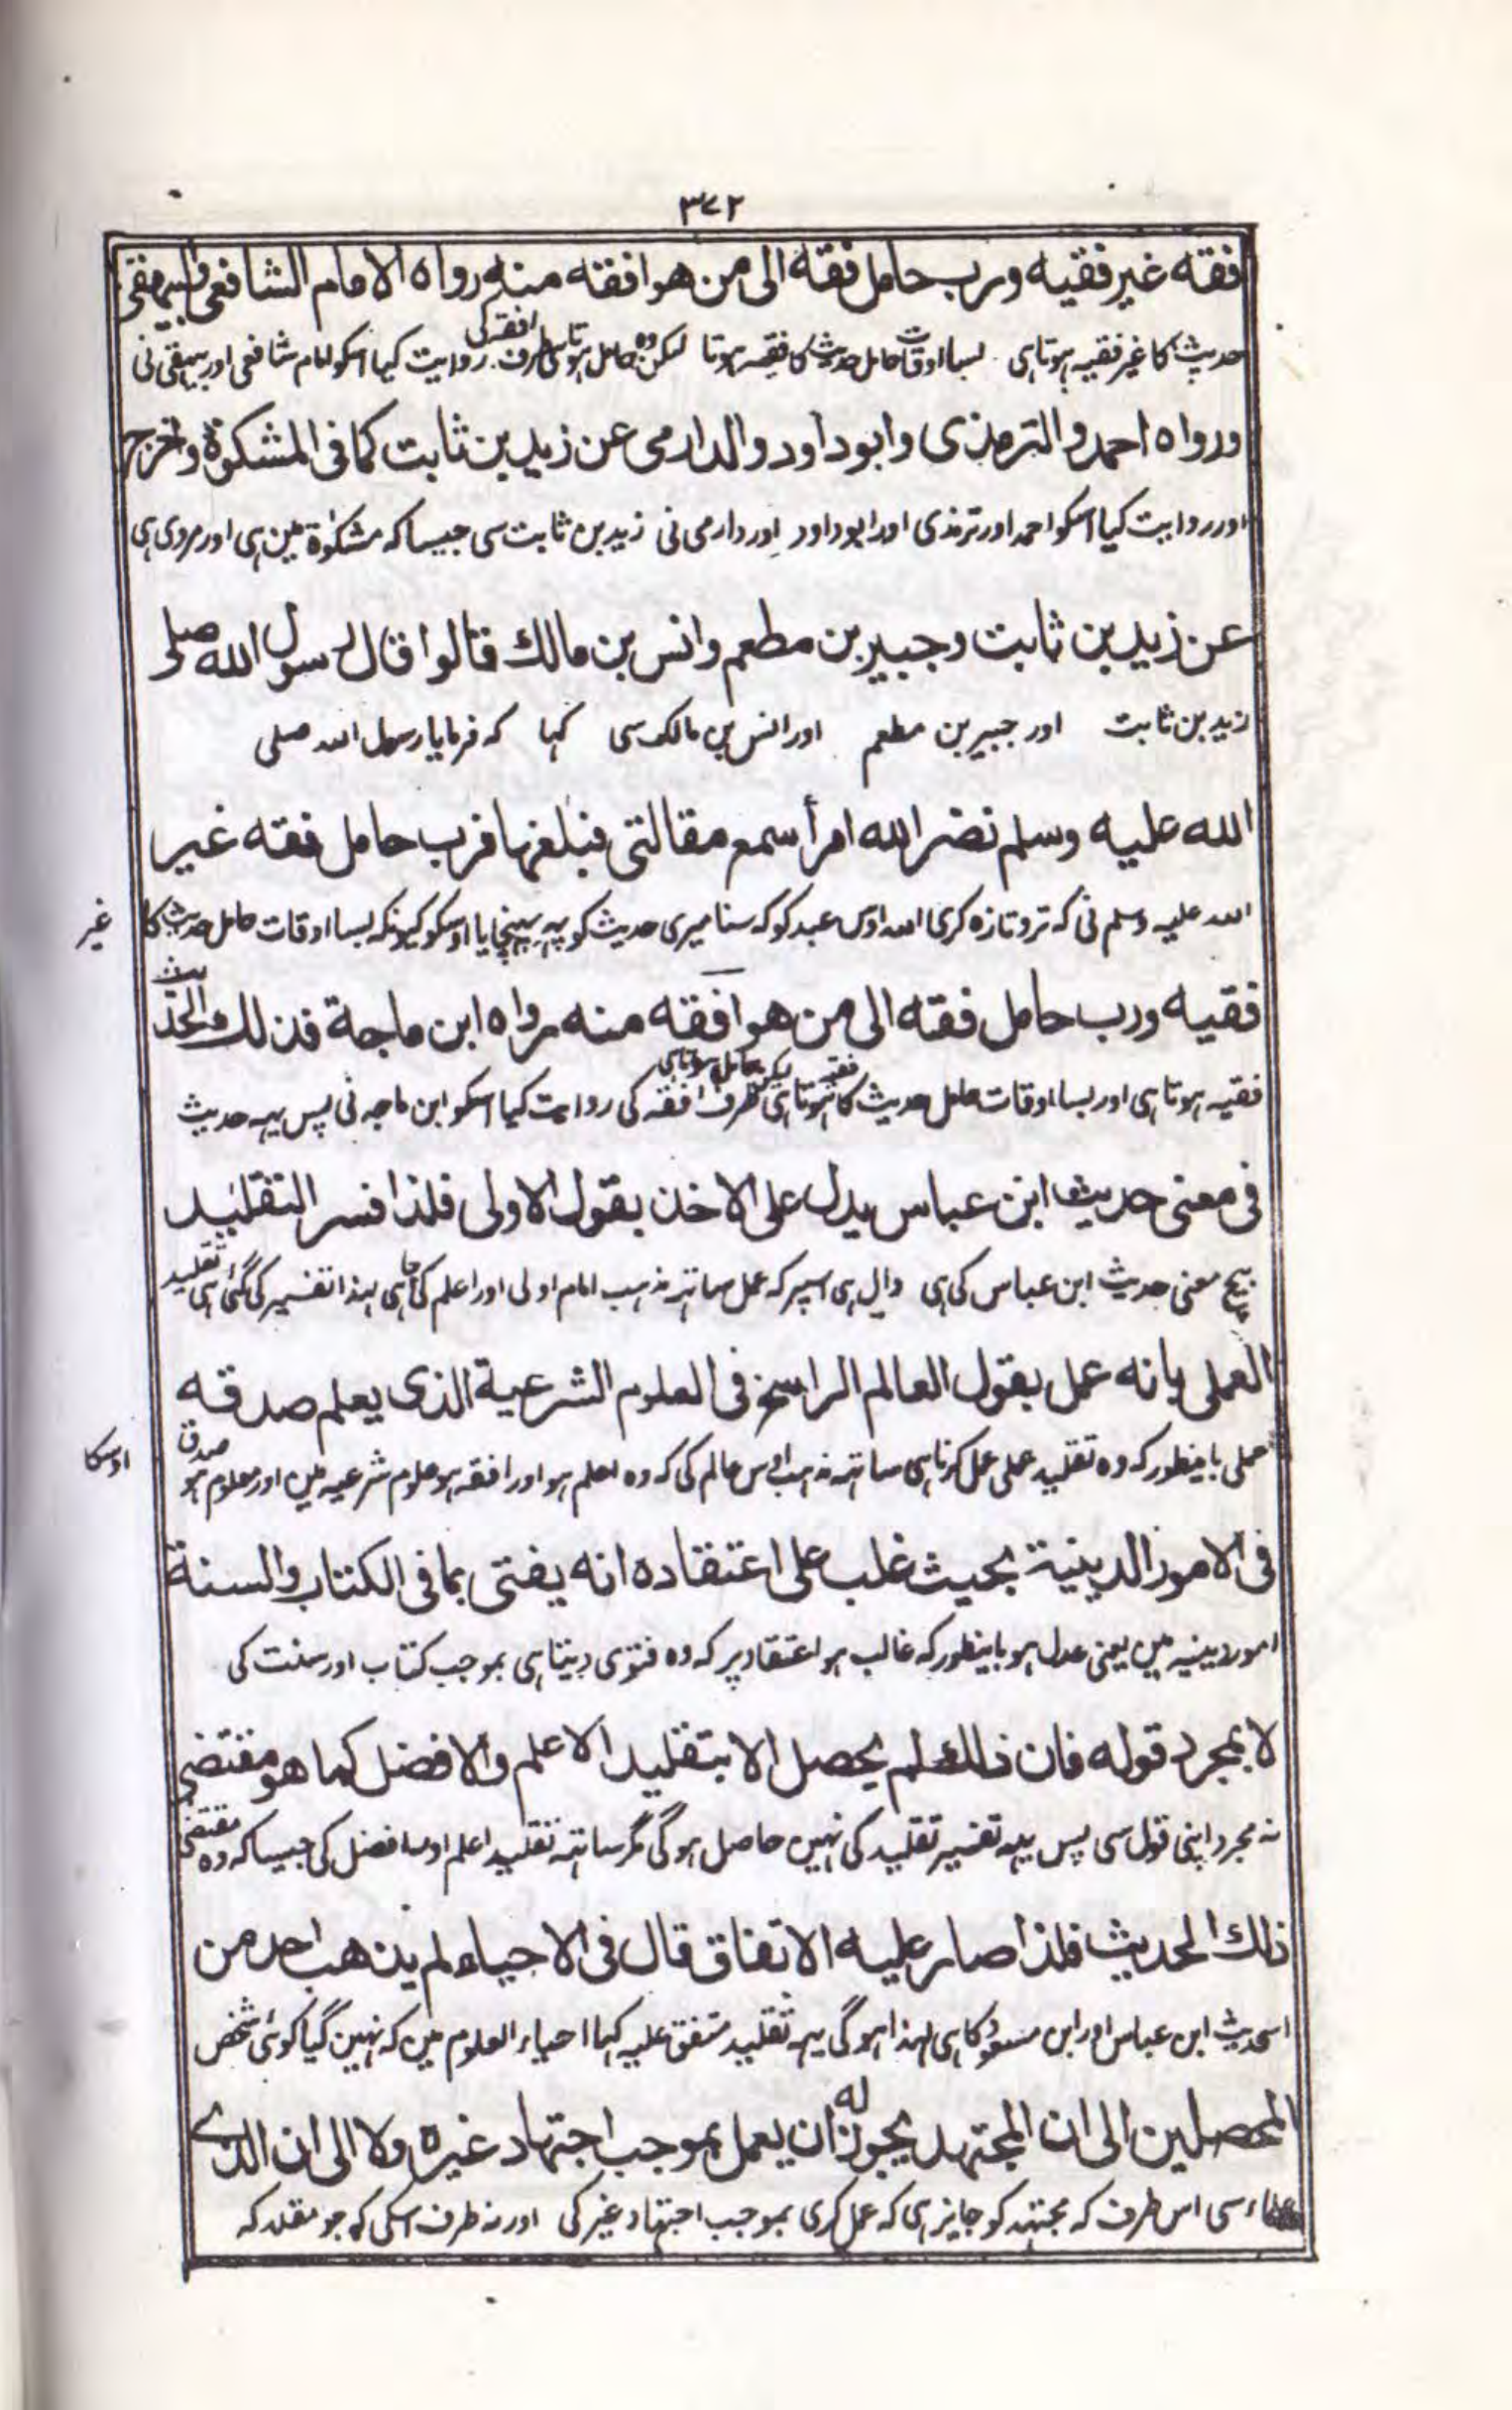 ۳۷۲
فقه غير فقيه ورب حامل فقه الى من هو افقه منه رواه الامام الشافعى والبيهقى
حدیث کا غیر فقیہ ہوتا ہی بسا اوقات حامل حدیث کا فقیہ ہوتا لیکن وہ حامل ہوتا ہی طرف افقہ کی روایت کیا اسکو امام شافعی اور بیہقی نی
ورواه احمد والترمذى وابوداود والدارمى عن زيد بن ثابت كما فى المشكوة واخرج
اور روایت کیا اسکو احمد اور ترمذی اور ابوداود اور دارمی نی زید بن ثابت سی جیسا کہ مشکوٰۃ مین ہی اور مروی ہی
عن زيد بن ثابت وجبير بن مطعم وانس بن مالك قالوا قال رسول الله صلى
زید بن ثابت اور جبیر بن مطعم اور انس بن مالک سی کہا کہ فرمایا رسول اللہ صلی
الله عليه وسلم نضر الله امرأ سمع مقالتى فبلغها فرب حامل فقه غير
اللہ علیہ وسلم نی کہ تر و تازہ کری اللہ اوس عبد کو کہ سنا میری حدیث کو پہر پہنچایا اوسکو کیونکہ بسا اوقات حامل حدیث کا غیر
فقيه ورب حامل فقه الى من هو افقه منه رواه ابن ماجة فذلك الحديث
فقیہ ہوتا ہی اور بسا اوقات حامل حدیث کا فقیہ ہوتا ہی لیکن حامل ہوتا ہی طرف افقہ کی روایت کیا اسکو ابن ماجہ نی پس یہہ حدیث
فى معنى حديث ابن عباس يدل على الاخذ بقول الاولى فلذا فسر التقليد
بیچ معنی حدیث ابن عباس کی ہی دال ہی اسپر کہ عمل ساتہہ مذہب امام اولی اور اعلم کی ہی لہذا تفسیر کی گئی ہی تقلید
العملى بانه عمل بقول العالم الراسخ فى العلوم الشرعية الذى يعلم صدقه
عملی باینطور کہ وہ تقلید عملی عمل کرنا ہی ساتہہ مذہب اوس عالم کی کہ وہ اعلم ہو اور افقہ ہو علوم شرعیہ مین اور معلوم ہو صدق اوسکا
فى الامور الدينية بحيث غلب على اعتقاده انه يفتى بما فى الكتاب والسنة
امور دینیہ مین یعنی عدل ہو باینطور کہ غالب ہو اعتقاد پر کہ وہ فتوی دیتا ہی بموجب کتاب اور سنت کی
لا بمجرد قوله فان ذلك لم يحصل الا بتقليد الاعلم والافضل كما هو مقتضى
نہ مجرد اپنی قول سی پس یہہ تفسیر تقلید کی نہین حاصل ہوگی مگر ساتہہ تقلید اعلم اور افضل کی جیسا کہ وہ مقتضی
ذلك الحديث فلذا صار عليه الاتفاق قال فى الاحياء لم يذهب احد من
اسحدیث ابن عباس اور ابن مسعود کا ہی لہذا ہوگی یہہ تقلید متفق علیہ کہا احیاء العلوم مین کہ نہین گیا کوئی شخص
المحصلين الى ان المجتهد يجوز له ان يعمل بموجب اجتهاد غيره ولا الى ان الذى
علماء سی اس طرف کہ مجتہد کو جایز ہی کہ عمل کری بموجب اجتہاد غیر کی اور نہ طرف اسکی کہ جو مقلد کہ